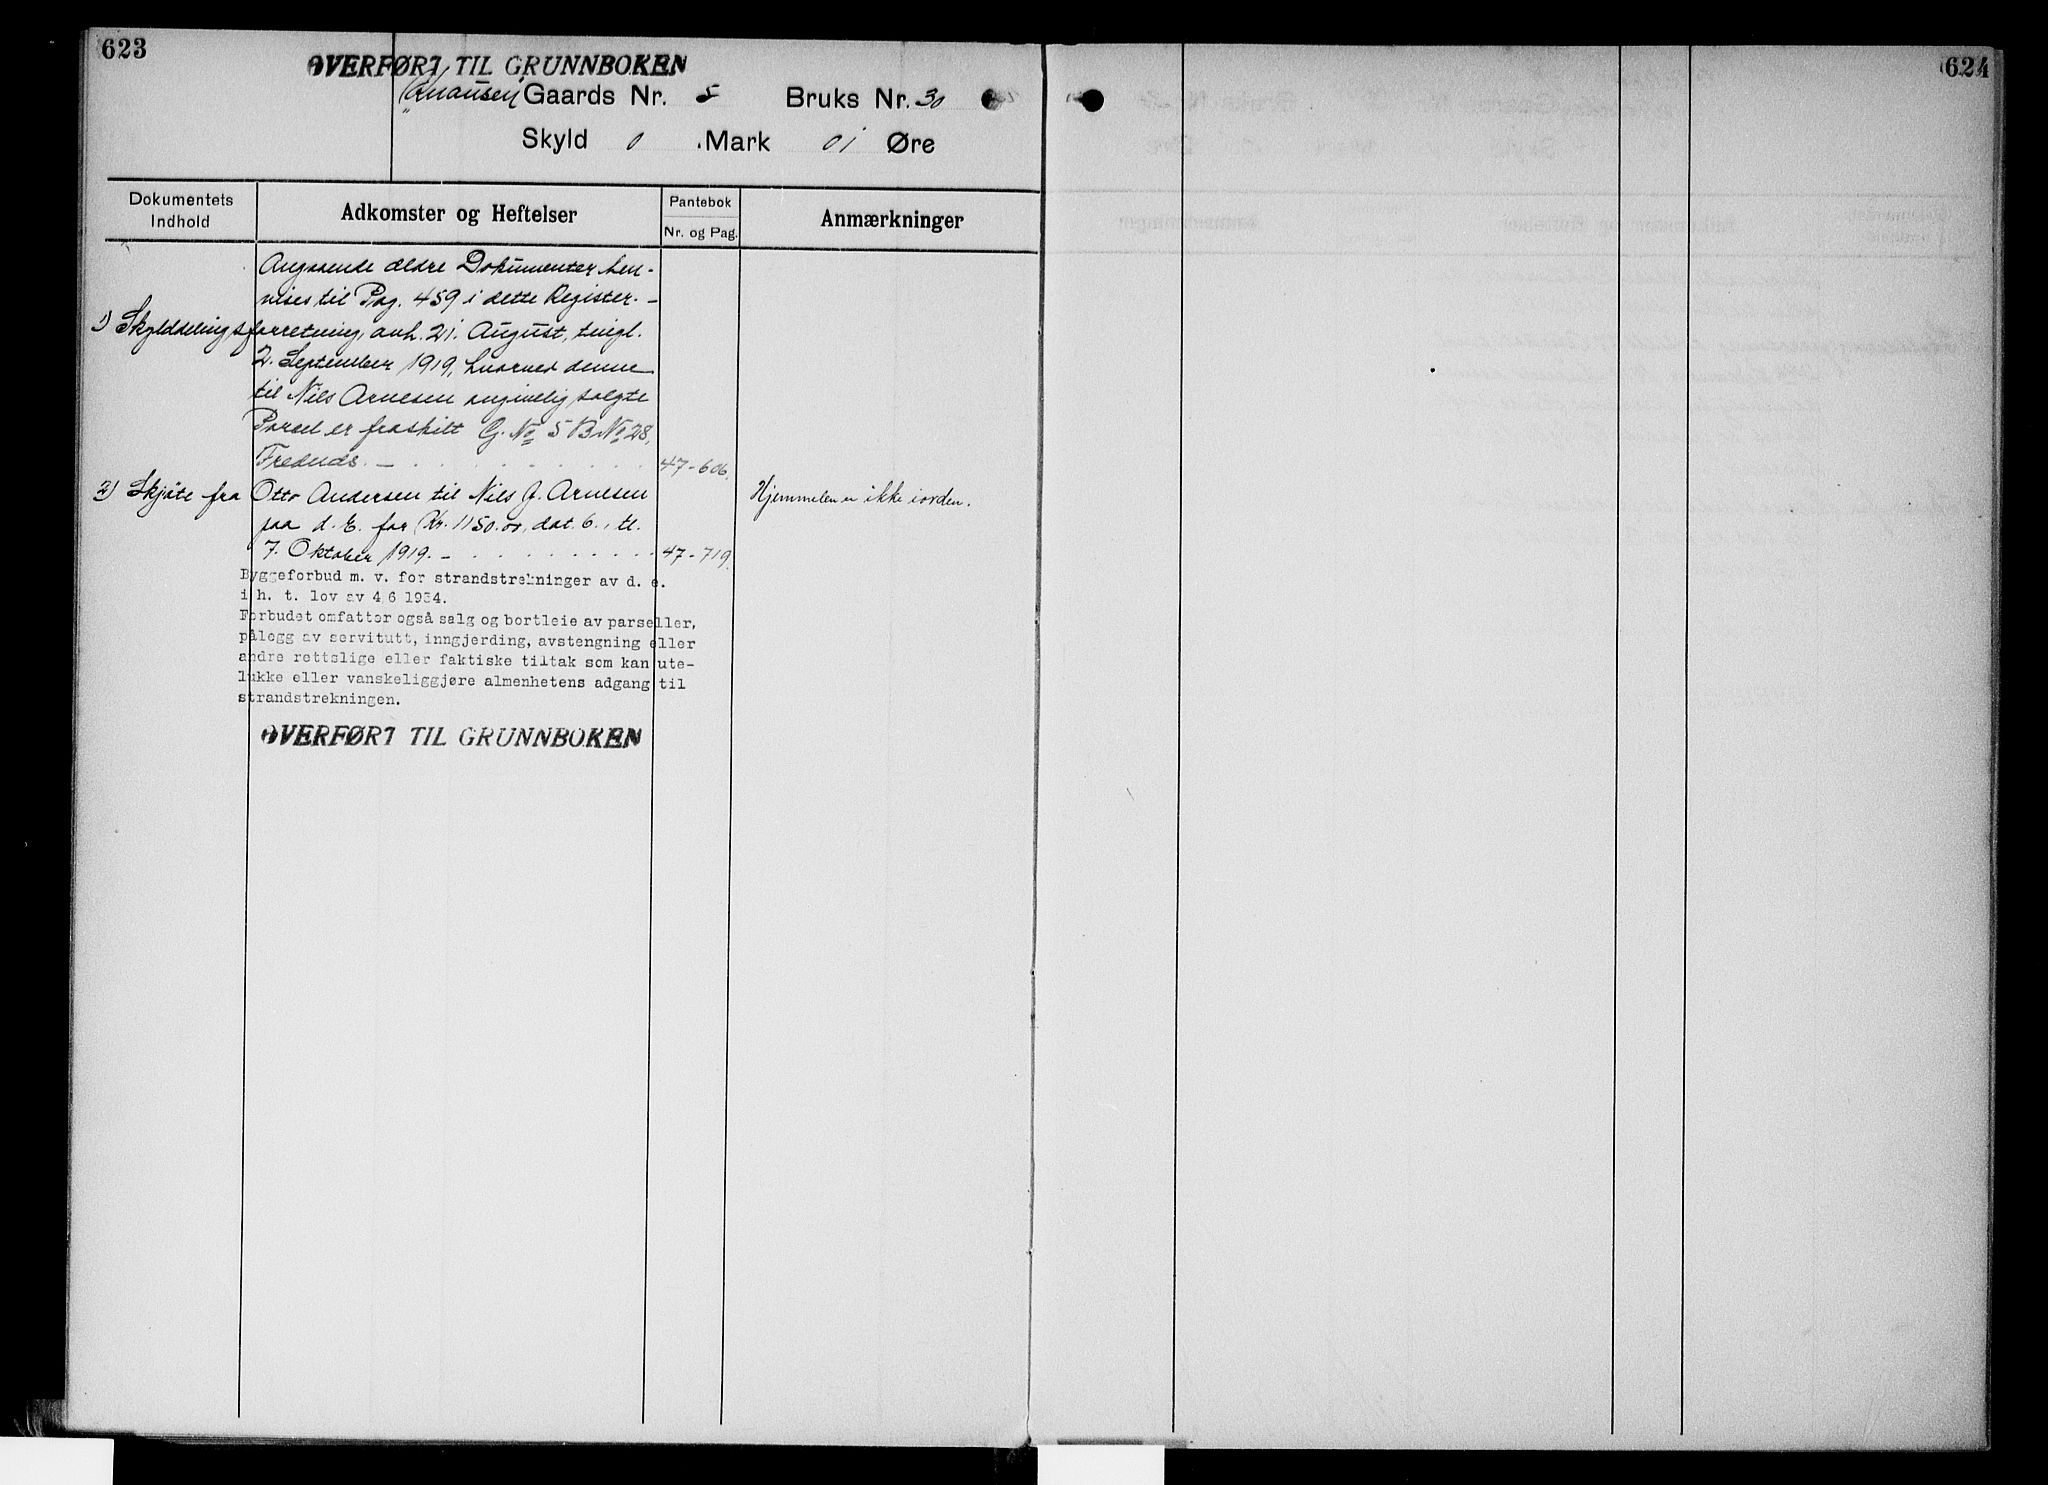 623
OVERFØRT TIL GRUNNBOKEN
"Knausen" Gaards Nr. 5 Bruks Nr. 30
Skyld 0 Mark 01 Øre
Dokumentets Indhold
Adkomster og Heftelser
Pantebok
Nr. og Pag.
Anmærkninger
Angaaende ældre Dokumenter hen-
vises til Pag. 459 i dette Register. -
1) Skylddelingsforretning, avh. 21. August, tingl.
2. September 1919, hvorved denne
til Nils Arnesen angivelig solgte
Parcel er fraskilt G. No 5 B No 28,
Frednds. - 47-606.
2) Skjøte fra Otto Andersen til Nils G. Arnesen
paa d. E. for Kr. 1150.00, dat. 6., tl.
7. Oktober 1919. - 47-719.
Hjemmelen er ikke iorden.
Byggeforbud m. v. for strandstrekninger av d. e.
i h. t. lov av 4 6 1954.
Forbudet omfatter også salg og bortleie av parseller,
pålegg av servitutt, inngjerding, avstengning eller
andre rettslige eller faktiske tiltak som kan ute-
lukke eller vanskeliggjøre almenhetens adgang til
strandstrekningen.
OVERFØRT TIL GRUNNBOKEN
624